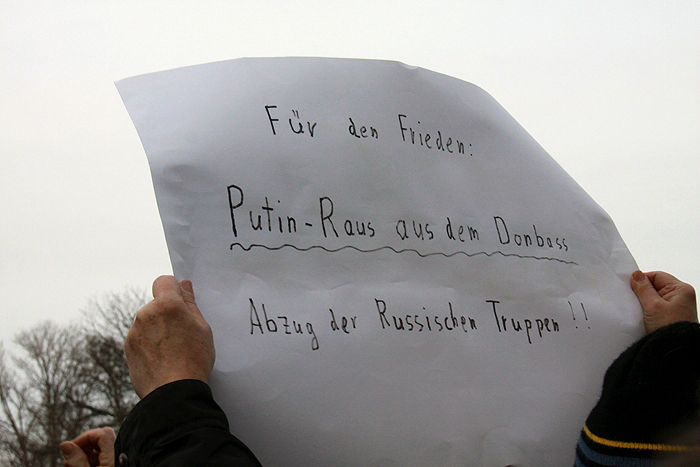 Für den Frieden:
Putin-Raus aus dem Donbass
Abzug der Russischen Truppen !!